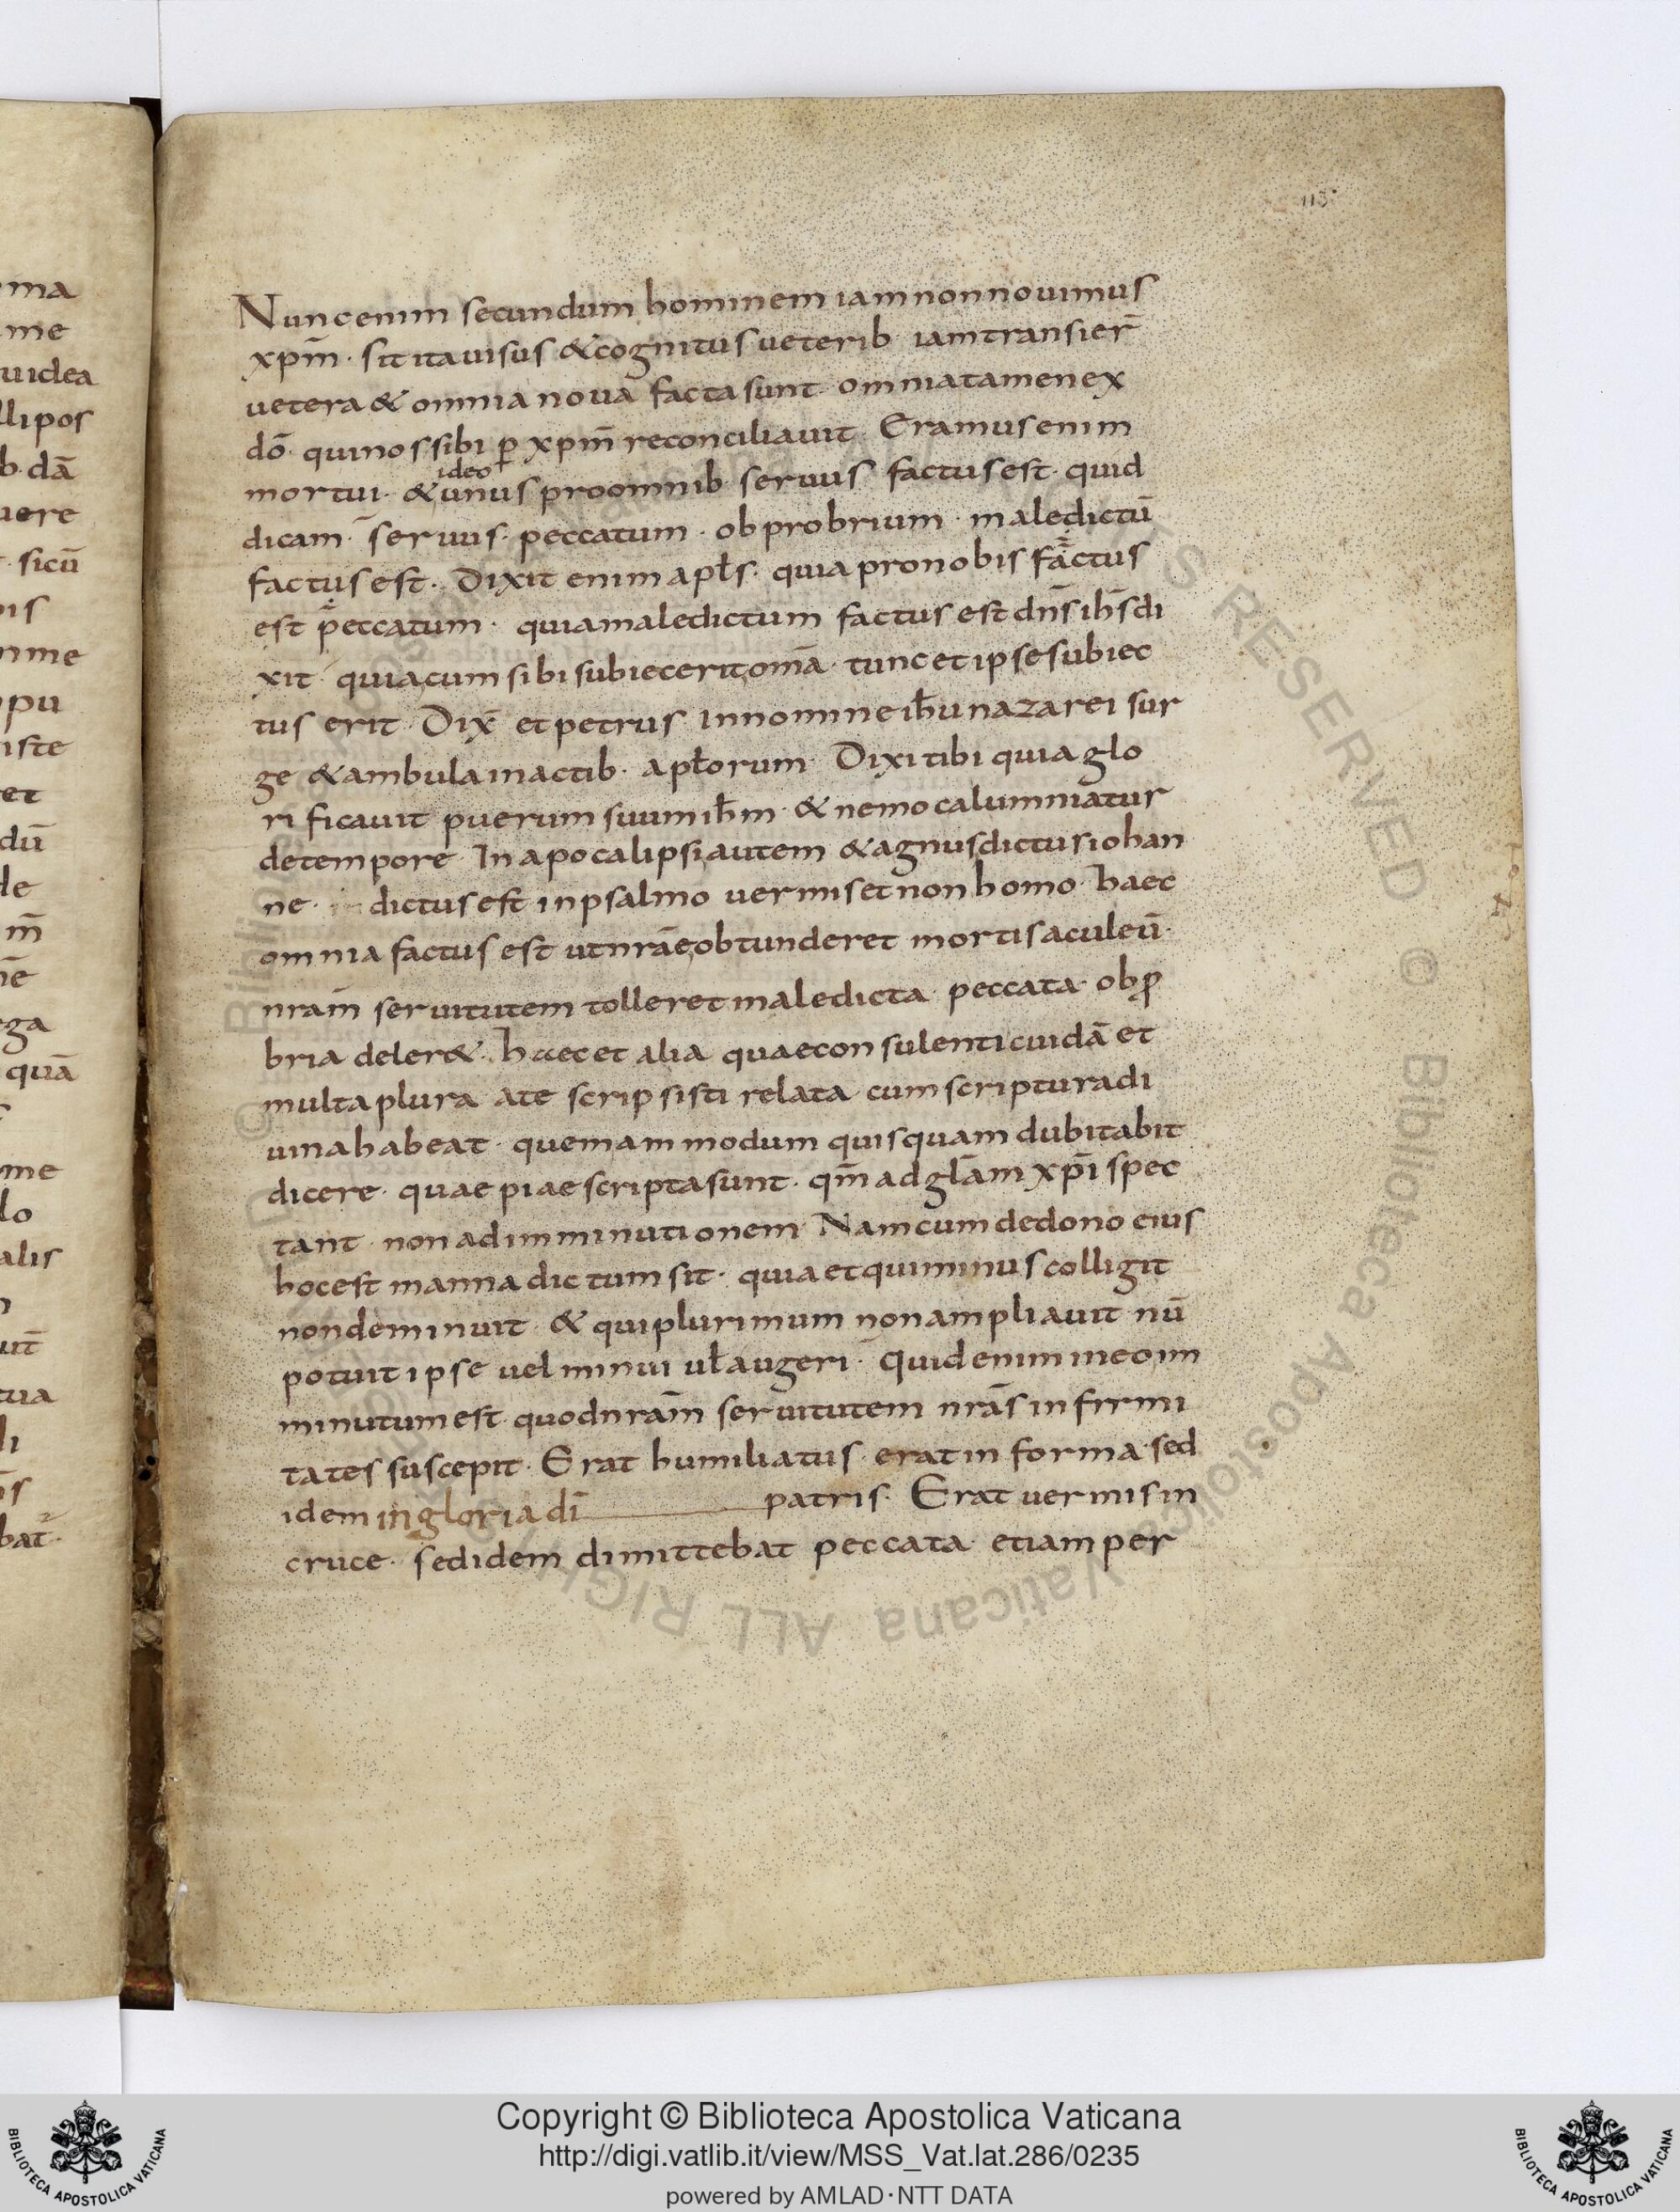 113
Nunc enim secundum hominem iam non nouimus
xpm̄ · sit ita uisus & cognitus ueterib· iam transier̄
uetera & omnia noua facta sunt · omnia tamen ex
dō · qui nos sibi p̱ xpm̄ reconciliauit · Eramus enim
ideo
mortui · & unus pro omnib· seruus factus est · quid
dicam · seruus · peccatum · obprobrium · maledictū
factus est · Dixit enim apłs · quia pro nobis factus
est peccatum · quia maledictum factus est dn̄s ih̄s di
xit · quia cum sibi subiecerit omā · tunc et ipse subiec
tus erit · Dix̄ et petrus in nomine ih̄u nazarei sur
ge & ambula in actib· apłorum · Dixi tibi quia glo
rificauit puerum suum ih̄m · & nemo calumniatur
de tempore · In apocalipsi autem & agnus dictus iohan
ne · dictus est in psalmo uermis et non homo · haec
omnia factus est ut nrāe obtunderet mortis aculeū ·
nrām seruitutem tolleret maledicta · peccata · obp̱
bria deler& · haec et alia quae consulenti cuidā et
multa plura a te scripsisti relata · cum scriptura di
uina habeat · quemammodum quisquam dubitabit
dicere · quae piae scripta sunt · qm̄ ad glām xp̄i spec
tant · non ad imminutionem · Nam cum de dono eius
hoc est manna dictum sit · quia et qui minus colligit
non deminuit · & qui plurimum non ampliauit · nū
potuit ipse uel minui uł augeri · Quid enim in eo im
minutum est · quod nrām seruitutem nrās infirmi
tates suscepit · Erat humiliatus · erat in forma · sed
idem in gloria dī patris · Erat uermis in
cruce · sed idem dimittebat peccata · etiam per
ma
me
uidea
lli pos
b· dā
uere
sicū
nis
nme
pu
iste
et
dū
de
m̄
nē
rga
quā
me
lo
alis
uit̄
tua
li
s̄
bat
© Biblioteca Apostolica Vaticana ALL RIGHTS RESERVED © Biblioteca Apostolica Vaticana ALL RIGHTS RESERVED
Copyright © Biblioteca Apostolica Vaticana
http://digi.vatlib.it/view/MSS_Vat.lat.286/0235
powered by AMLAD·NTT DATA
BIBLIOTECA APOSTOLICA VATICANA
BIBLIOTECA APOSTOLICA VATICANA